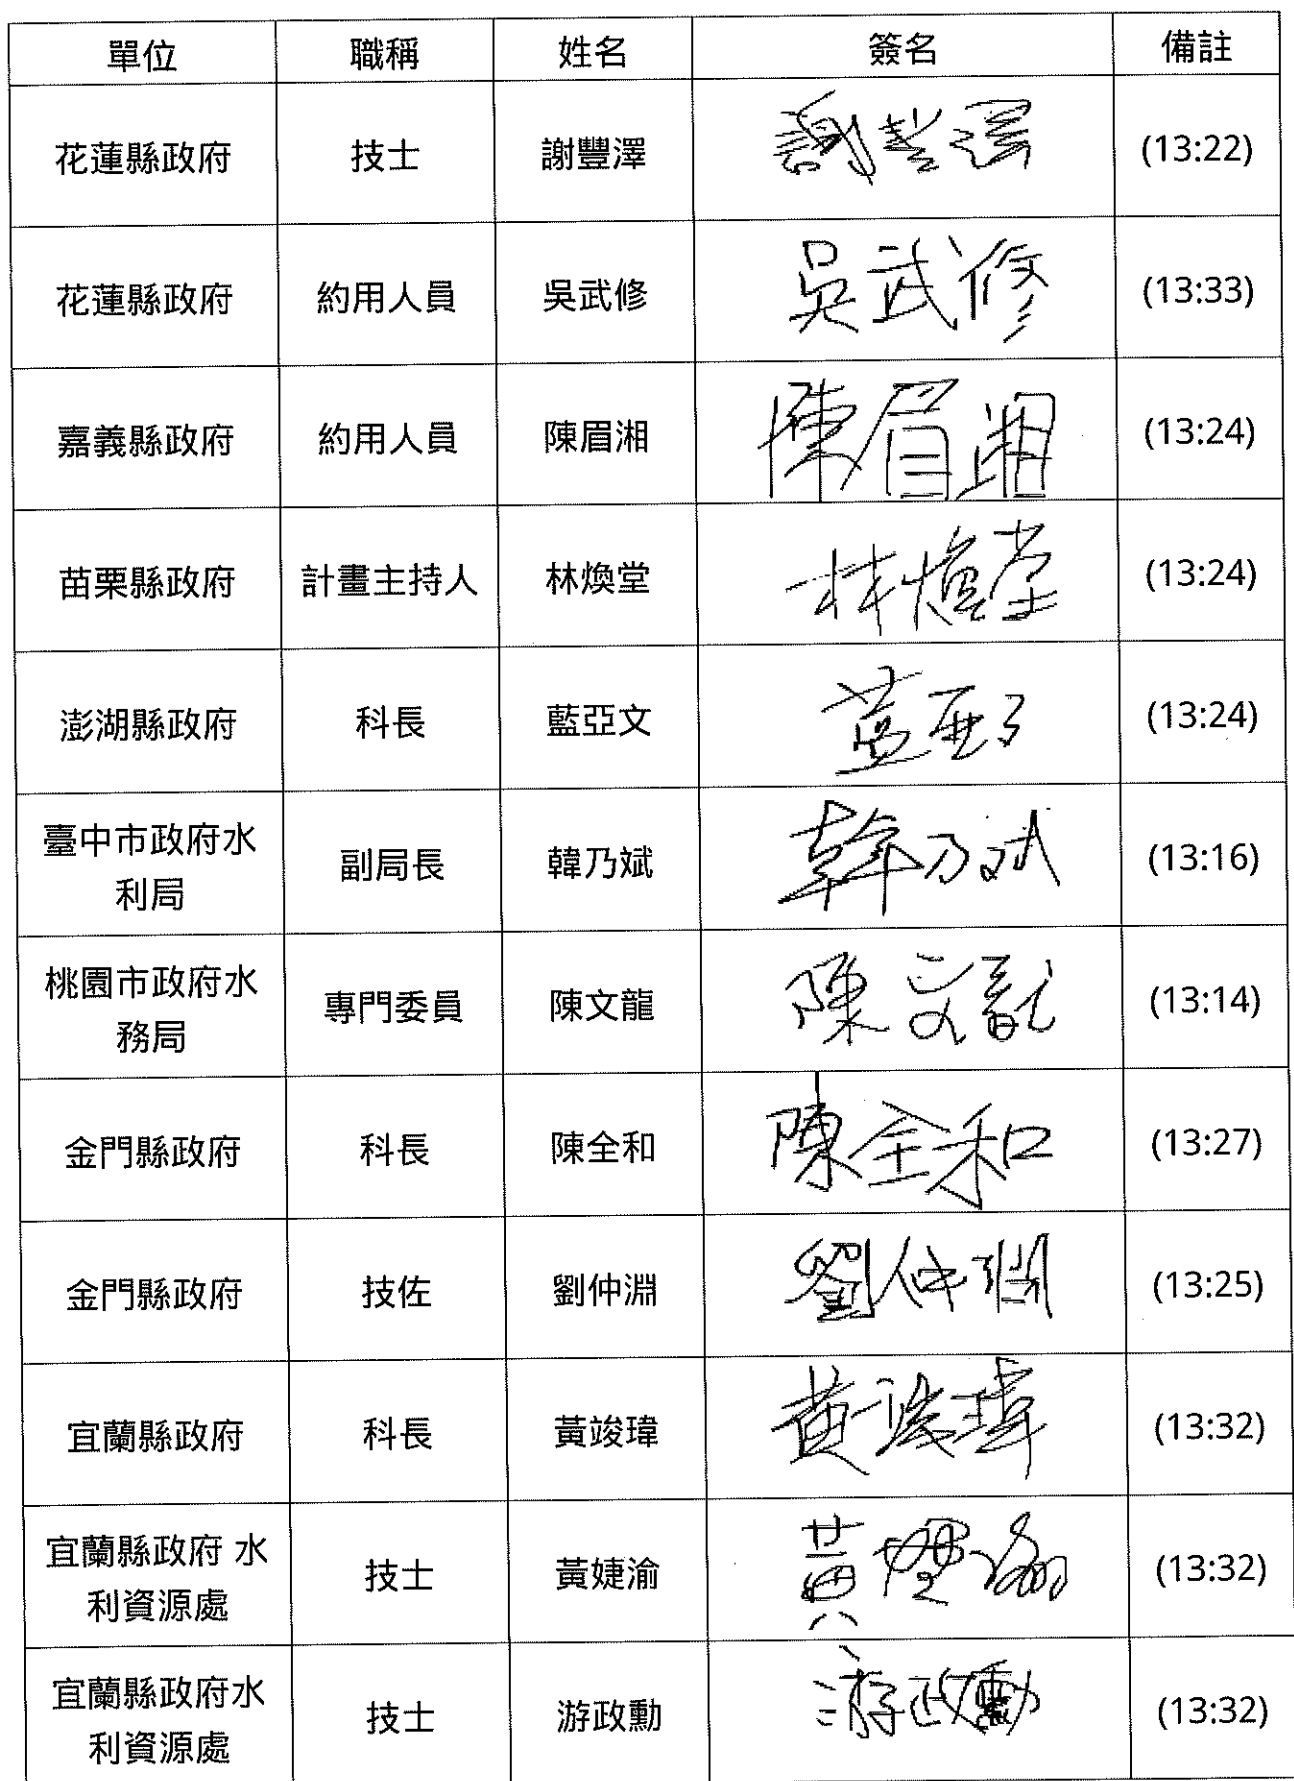 單位 職稱 姓名 簽名 備註
花蓮縣政府 技士 謝豐澤 謝豐澤 (13:22)
花蓮縣政府 約用人員 吳武修 吳武修 (13:33)
嘉義縣政府 約用人員 陳眉湘 陳眉湘 (13:24)
苗栗縣政府 計畫主持人 林煥堂 林煥堂 (13:24)
澎湖縣政府 科長 藍亞文 藍亞文 (13:24)
臺中市政府水
利局 副局長 韓乃斌 韓乃斌 (13:16)
桃園市政府水
務局 專門委員 陳文龍 陳文龍 (13:14)
金門縣政府 科長 陳全和 陳全和 (13:27)
金門縣政府 技佐 劉仲淵 劉仲淵 (13:25)
宜蘭縣政府 科長 黃竣瑋 黃竣瑋 (13:32)
宜蘭縣政府 水
利資源處 技士 黃婕渝 黃婕渝 (13:32)
宜蘭縣政府水
利資源處 技士 游政勳 游政勳 (13:32)